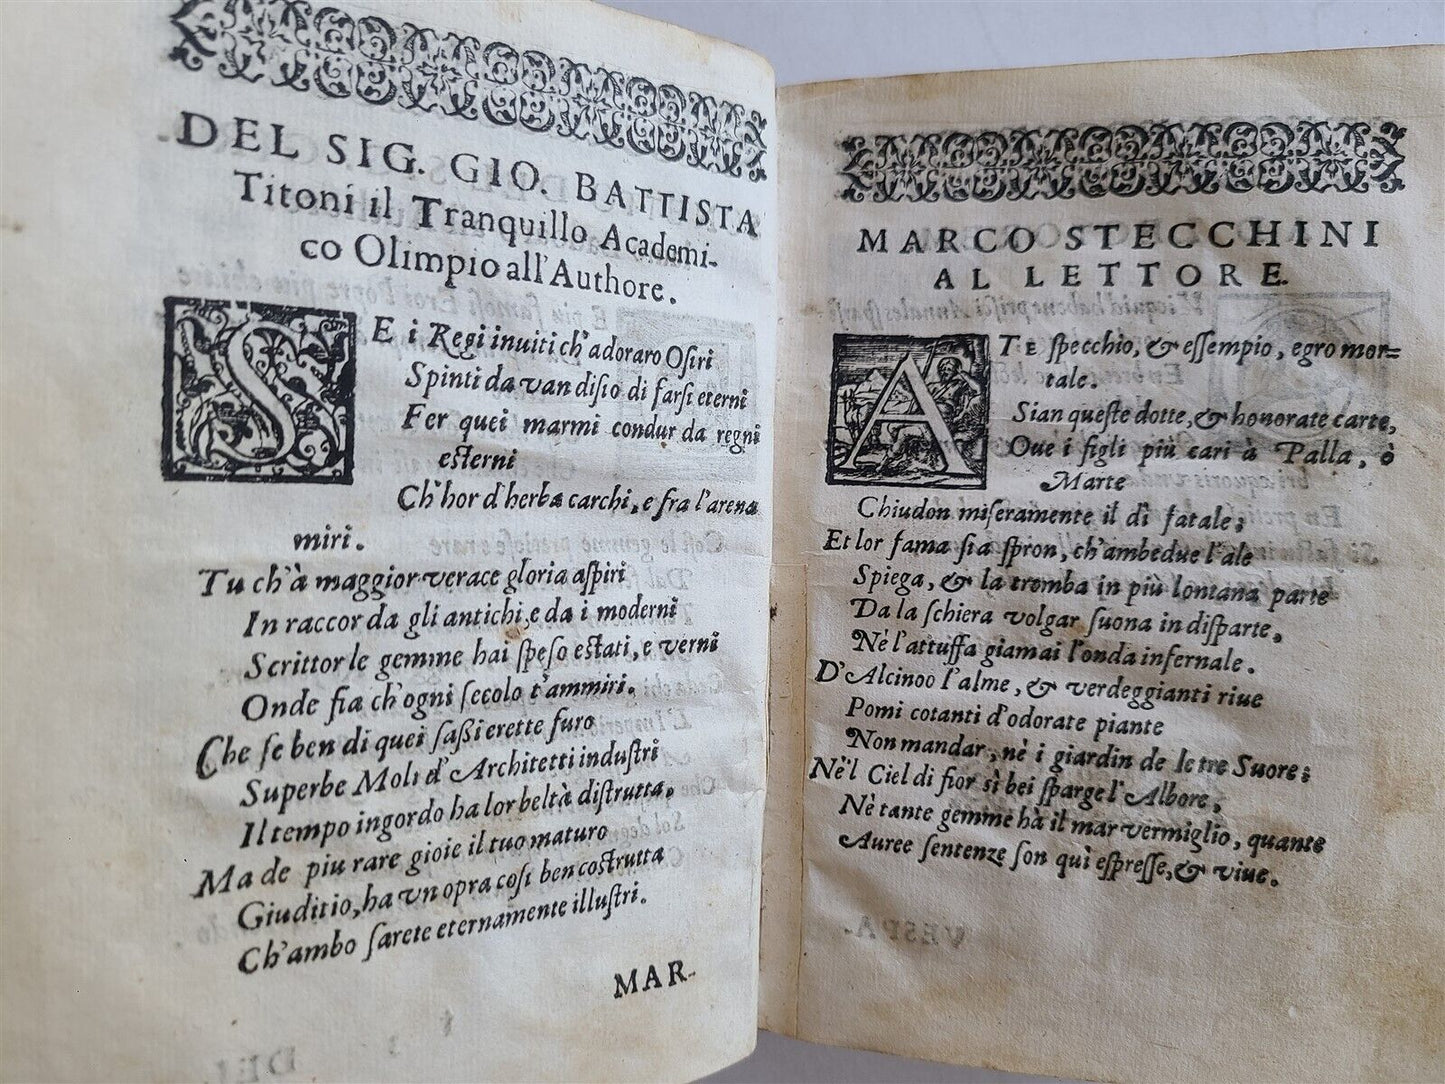 DEL SIG. GIO. BATTISTA
Titoni il Tranquillo Academi-
co Olimpio all'Authore.
SE i Regi inuiti ch' adoraro Osiri
Spinti da van disio di farsi eterni
Fer quei marmi condur da regni
esterni
Ch' hor d'herba carchi, e fra l'arena
miri.
Tu ch'à maggior verace gloria aspiri
In raccor da gli antichi, e da i moderni
Scrittor le gemme hai speso estati, e verni
Onde fia ch'ogni secolo t'ammiri.
Che se ben di quei sassi erette furo
Superbe Moli d'Architetti industri
Il tempo ingordo ha lor beltà distrutta.
Ma de piu rare gioie il tuo maturo
Giuditio, ha vn opra così ben costrutta
Ch'ambo sarete eternamente illustri.
MAR-
MARCO STECCHINI
AL LETTORE.
ATE specchio, & essempio, egro mor=
tale.
Sian queste dotte, & honorate carte,
Oue i figli più cari à Palla, ò
Marte
Chiudon miseramente il dì fatale;
Et lor fama sia spron, ch'ambedue l'ale
Spiega, & la tromba in più lontana parte
Da la schiera volgar suona in disparte,
Nè l'attuffa giamai l'onda infernale.
D'Alcinoo l'alme, & verdeggianti riue
Pomi cotanti d'odorate piante
Non mandar, nè i giardin de le tre Suore;
Nè'l Ciel di fior sì bei sparge l'Albore,
Nè tante gemme hà il mar vermiglio, quante
Auree sentenze son quì espresse, & viue.